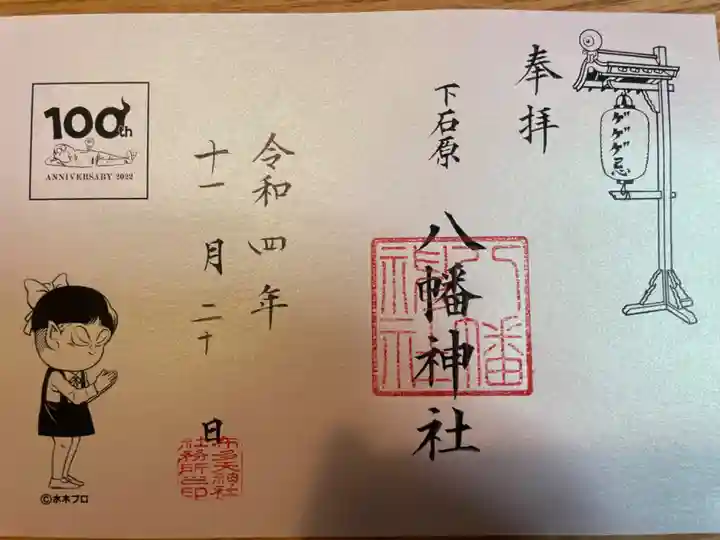 奉拝
下石原
八幡神社
八幡神社
ゲゲゲ忌
令和四年
十一月二十日
布多天神社
社務所之印
100th
ANNIVERSARY 2022
©水木プロ